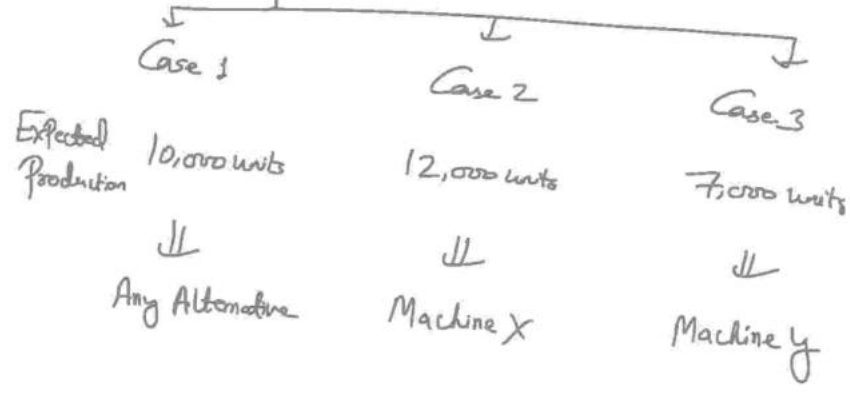 Case 1 Case 2 Case 3
Expected Production 10,000 units 12,000 units 7,000 units
Any Alternative Machine X Machine Y